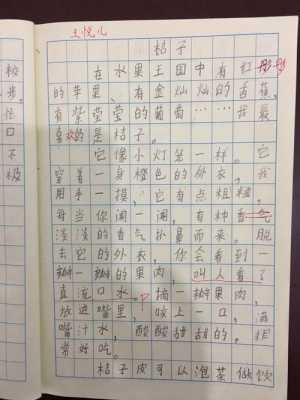 王悦儿
桔子
在水果王国中有红彤彤
的苹果、有金灿灿的香蕉,
有紫莹莹的葡萄……我最
喜欢的是桔子。
它像小灯笼一样。它
穿着一身橙色的外衣,我
用手一摸,它有点粗糙。
每当你闻一闻,有种香气
淡淡的香气扑鼻而来。脱
去它的外衣,你会看到一
瓣一瓣的果肉,叫人看了
直流口水。摘一瓣果肉,
放进嘴里,咬上一口,满
嘴汁水,酸酸甜甜的。非
常好吃。
桔子皮可以泡茶做饮